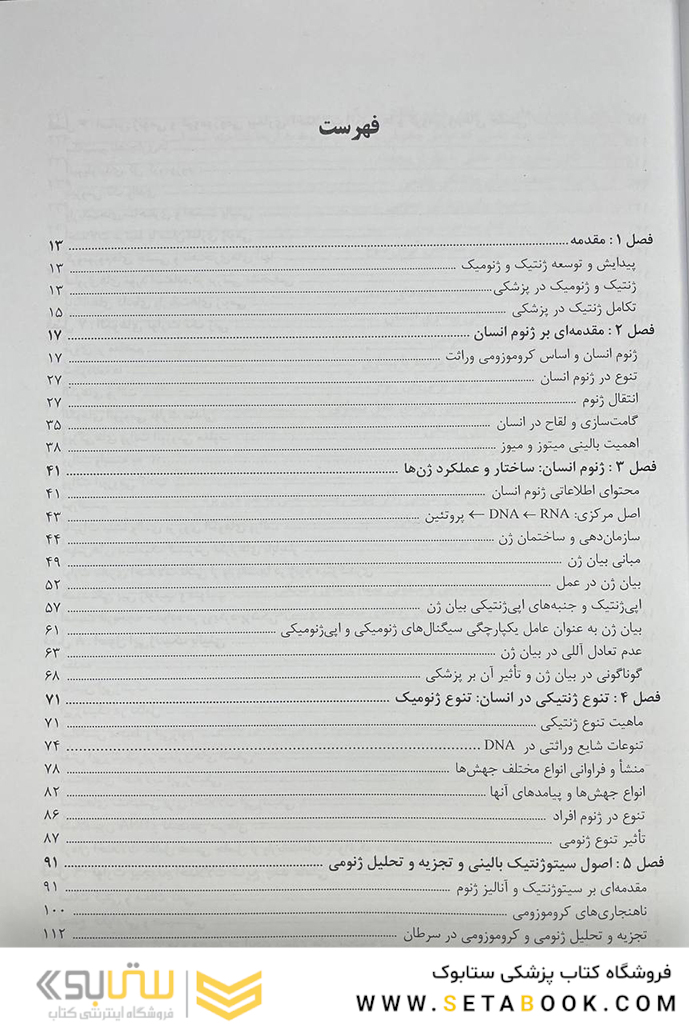 فهرست
فصل ۱ : مقدمه ۱۳
پیدایش و توسعه ژنتیک و ژنومیک ۱۳
ژنتیک و ژنومیک در پزشکی ۱۳
تکامل ژنتیک در پزشکی ۱۵
فصل ۲ : مقدمه‌ای بر ژنوم انسان ۱۷
ژنوم انسان و اساس کروموزومی وراثت ۱۷
تنوع در ژنوم انسان ۲۷
انتقال ژنوم ۲۷
گامت‌سازی و لقاح در انسان ۳۵
اهمیت بالینی میتوز و میوز ۳۸
فصل ۳ : ژنوم انسان: ساختار و عملکرد ژن‌ها ۴۱
محتوای اطلاعاتی ژنوم انسان ۴۱
اصل مرکزی: DNA ← RNA ← پروتئین ۴۳
سازمان‌دهی و ساختمان ژن ۴۴
مبانی بیان ژن ۴۹
بیان ژن در عمل ۵۲
اپی‌ژنتیک و جنبه‌های اپی‌ژنتیکی بیان ژن ۵۷
بیان ژن به عنوان عامل یکپارچگی سیگنال‌های ژنومیکی و اپی‌ژنومیکی ۶۱
عدم تعادل آللی در بیان ژن ۶۳
گوناگونی در بیان ژن و تأثیر آن بر پزشکی ۶۸
فصل ۴ : تنوع ژنتیکی در انسان: تنوع ژنومیک ۷۱
ماهیت تنوع ژنتیکی ۷۱
تنوعات شایع وراثتی در DNA ۷۴
منشأ و فراوانی انواع مختلف جهش‌ها ۷۸
انواع جهش‌ها و پیامدهای آنها ۸۲
تنوع در ژنوم افراد ۸۶
تأثیر تنوع ژنومی ۸۷
فصل ۵ : اصول سیتوژنتیک بالینی و تجزیه و تحلیل ژنومی ۹۱
مقدمه‌ای بر سیتوژنتیک و آنالیز ژنوم ۹۱
ناهنجاری‌های کروموزومی ۱۰۰
تجزیه و تحلیل ژنومی و کروموزومی در سرطان ۱۱۲
فروشگاه کتاب پزشکی ستابوک
WWW.SETABOOK.COM
ستابوک
فروشگاه اینترنتی کتاب